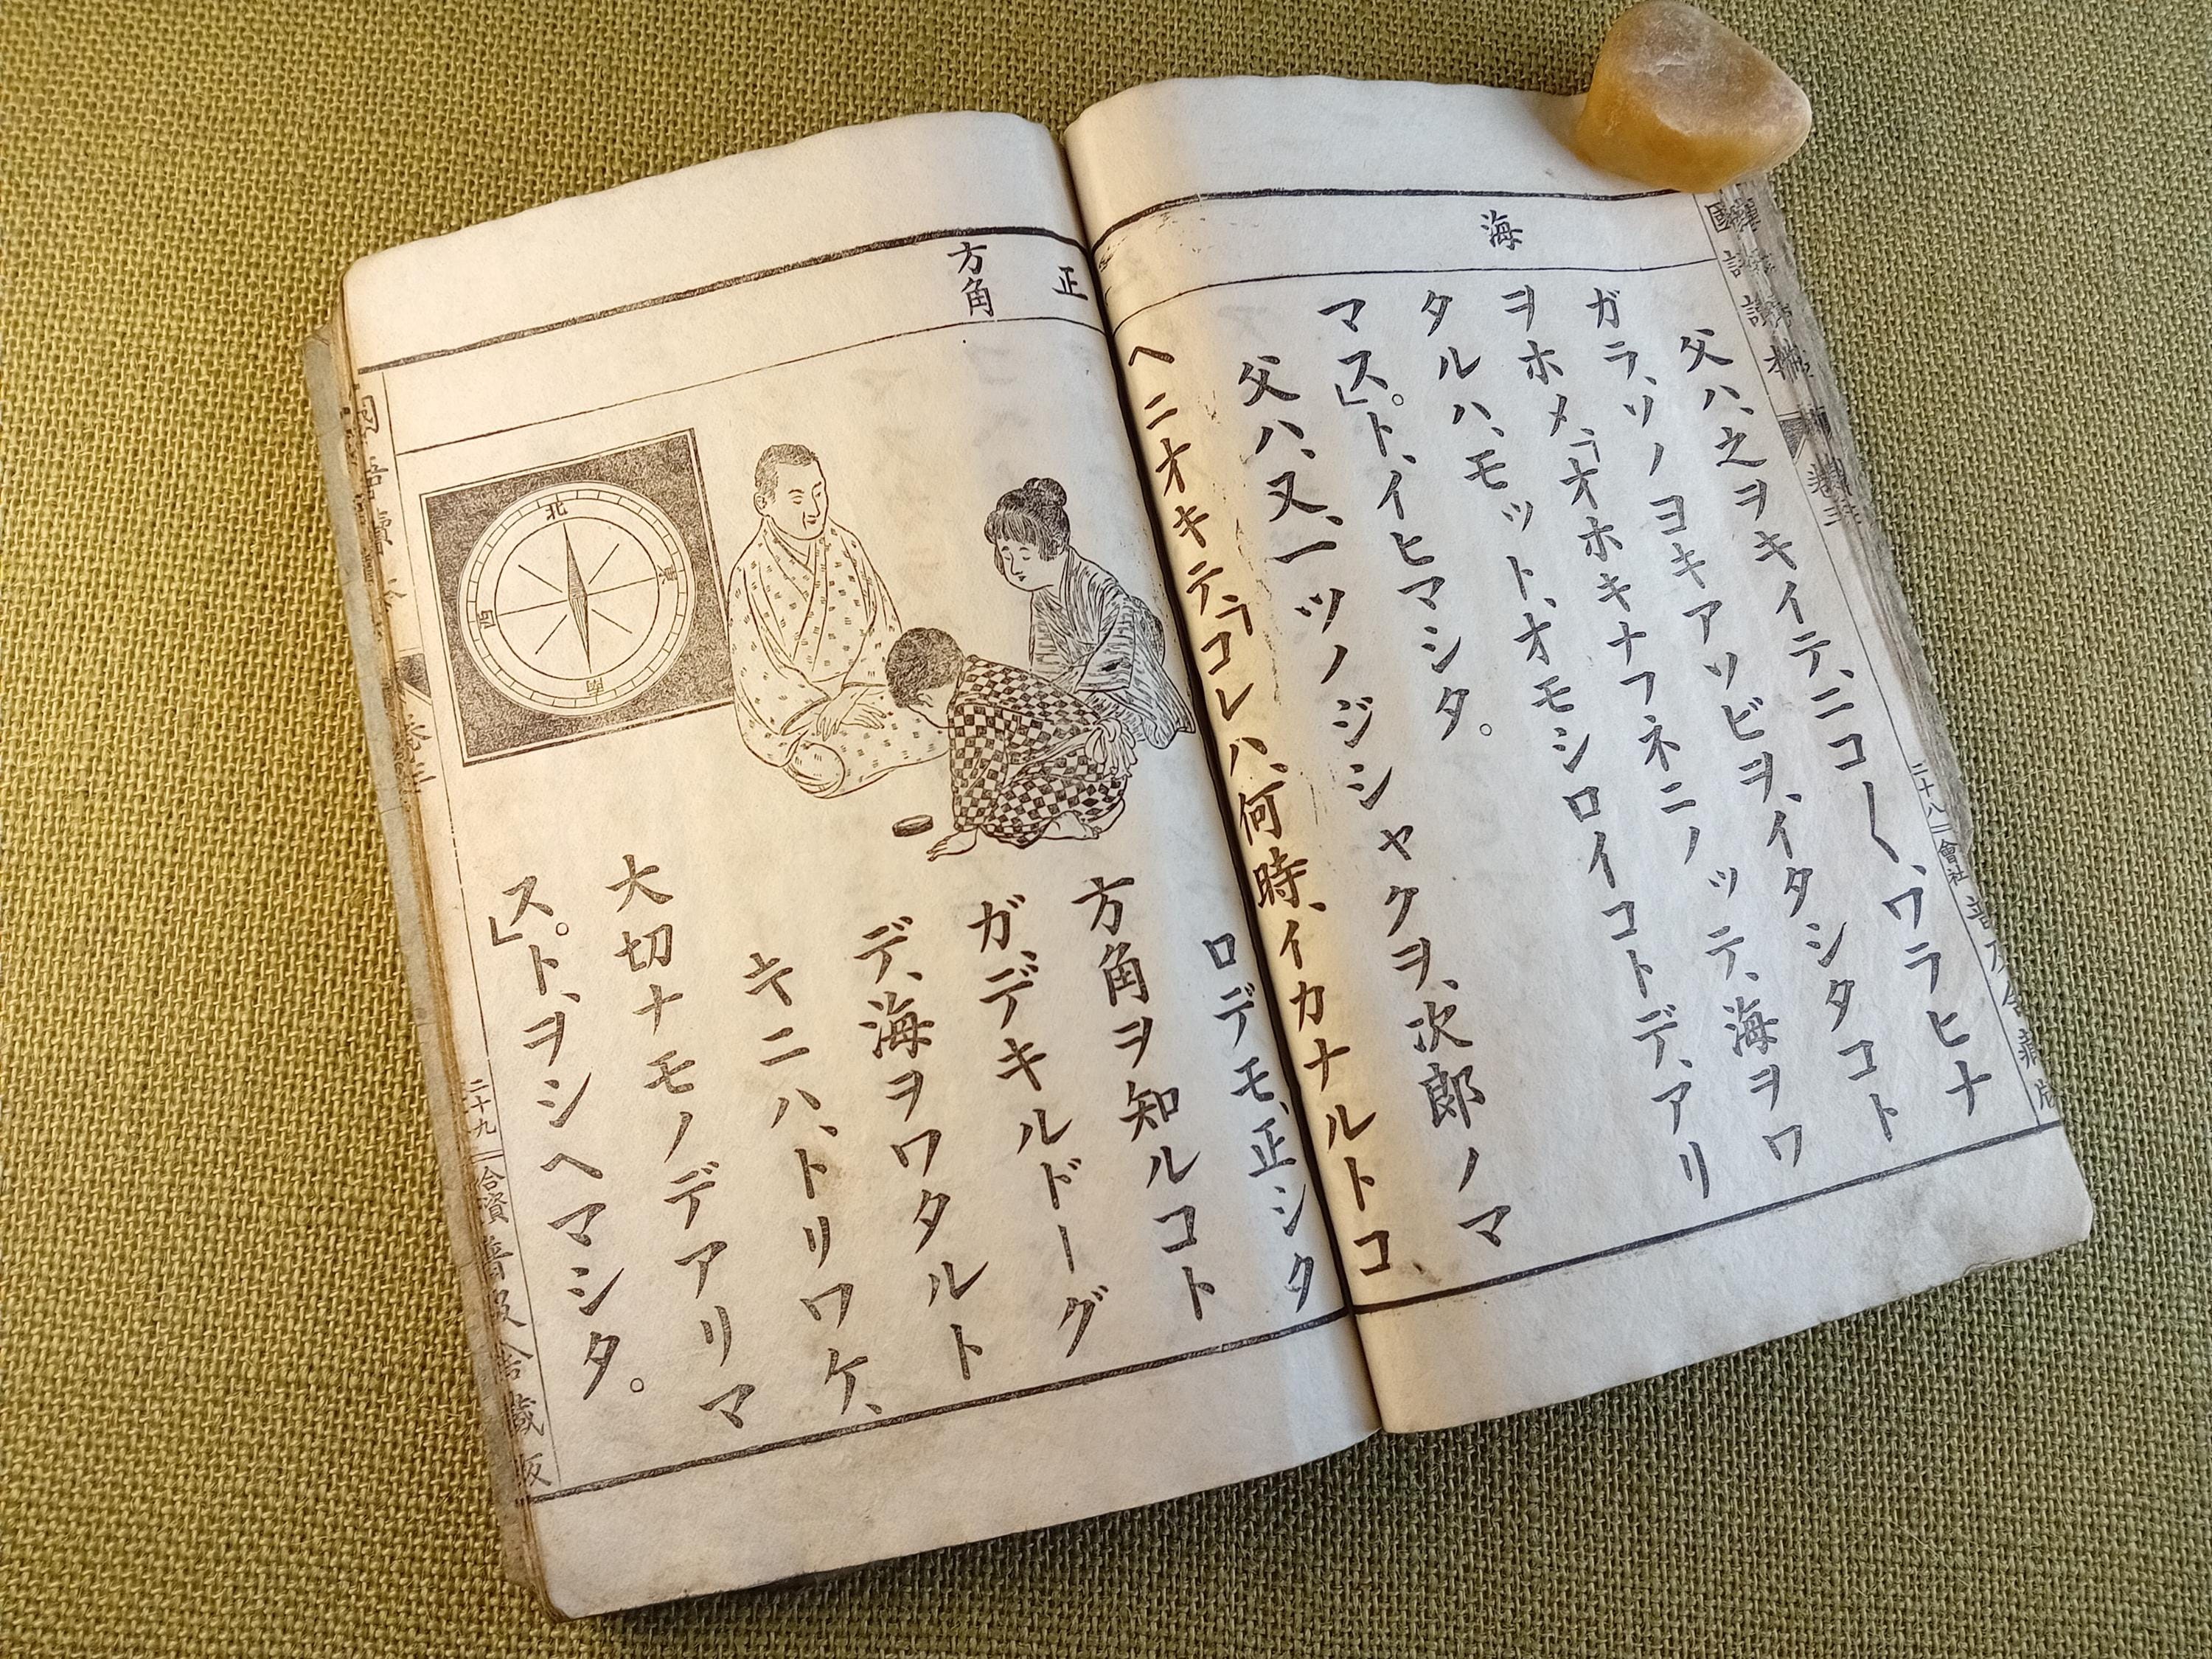 海
父ハ、之ヲキイテ、ニコ〱、ワラヒナ
ガラ、ソノヨキアソビヲ、イタシタコト
ヲホメ、「オホキナフネニノッテ、海ヲワ
タルハ、モット、オモシロイコトデ、アリ
マス。」ト、イヒマシタ。
父ハ、又、一ツノジシャクヲ、次郎ノマ
ヘニオキテ、「コレハ、何時、イカナルトコ
二十八
正
方角
ロデモ、正シタ
方角ヲ知ルコト
ガ、デキルドーグ
デ、海ヲワタルト
キニハ、トリワケ、
大切ナモノデアリマ
ス。」ト、ヲシヘマシタ。
北
東
南
西
二十九
合資
普及舍藏版